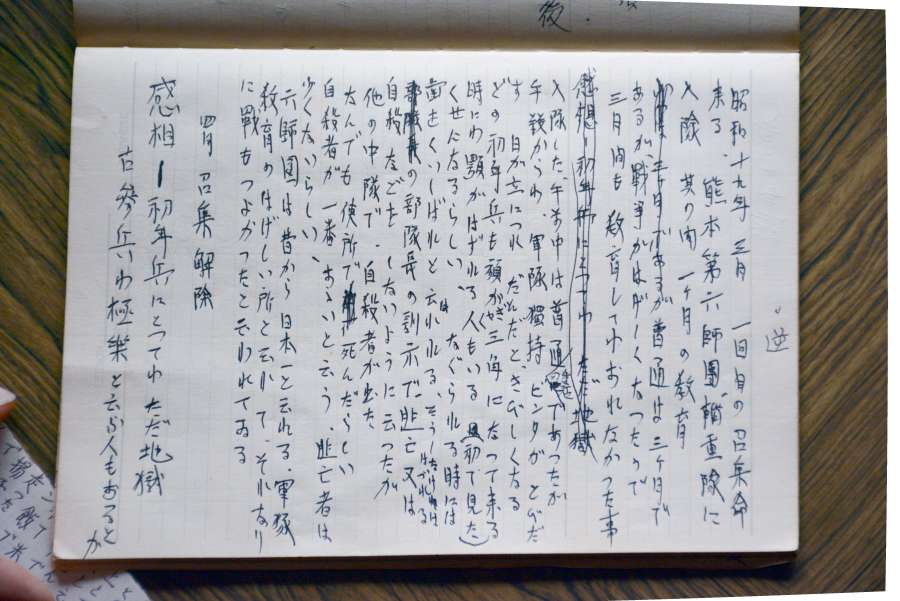 昭和十九年 三月 一回目の召集命
来る、熊本第六師團、輜重隊に
入隊 其の間 一ヶ月の教育
であるが普通は三ヶ月で
あるが、戦争がはげしくなったので
三月間も教育してわおれなかった事
感想ー初年兵にとってわ ただ地獄
入隊した午前中は普通であったが
午後からわ、軍隊獨特、ビンタがとびだ
す 日がたつにつれ だんだときびしくなる
どの初年兵も顔が三角になって来る
時にわ顎がはずれる人もいる 初て見た
くせになるらしい、なぐられる時には
歯をくいしばれと云れる、そうしなければはずれる
の部隊長の訓示で逃亡又は
自殺などをしないように云ったが
他の中隊で、自殺者が出た
なんでも便所で死んだらしい
自殺者が一番、多いと云う、逃亡者は
少くないらしい、
六師團は昔から日本一と云れる、軍隊
教育のはげしい所と云れて、それなり
に戦もつよかったと云われている
四月 召集解除
感相ー初年兵にとってわ ただ地獄
古参兵わ極楽と云ふ人もあると
が
逆
後.